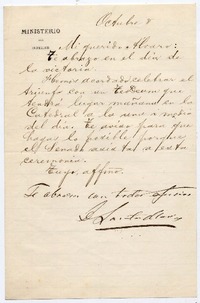 Octubre 8
MINISTERIO
DE
Mi querido Alvaro:
te abrazo en el dia de
la victoria.
Hemos acordado celebrar el
triunfo con un tedeum que
tendrá lugar mañana en la
Catedral a la una y media
del dia. Te aviso para que
hagas lo posible porque
el Senado asista a esta
ceremonia.
Tuyo, affmo.
Te abraza con todo